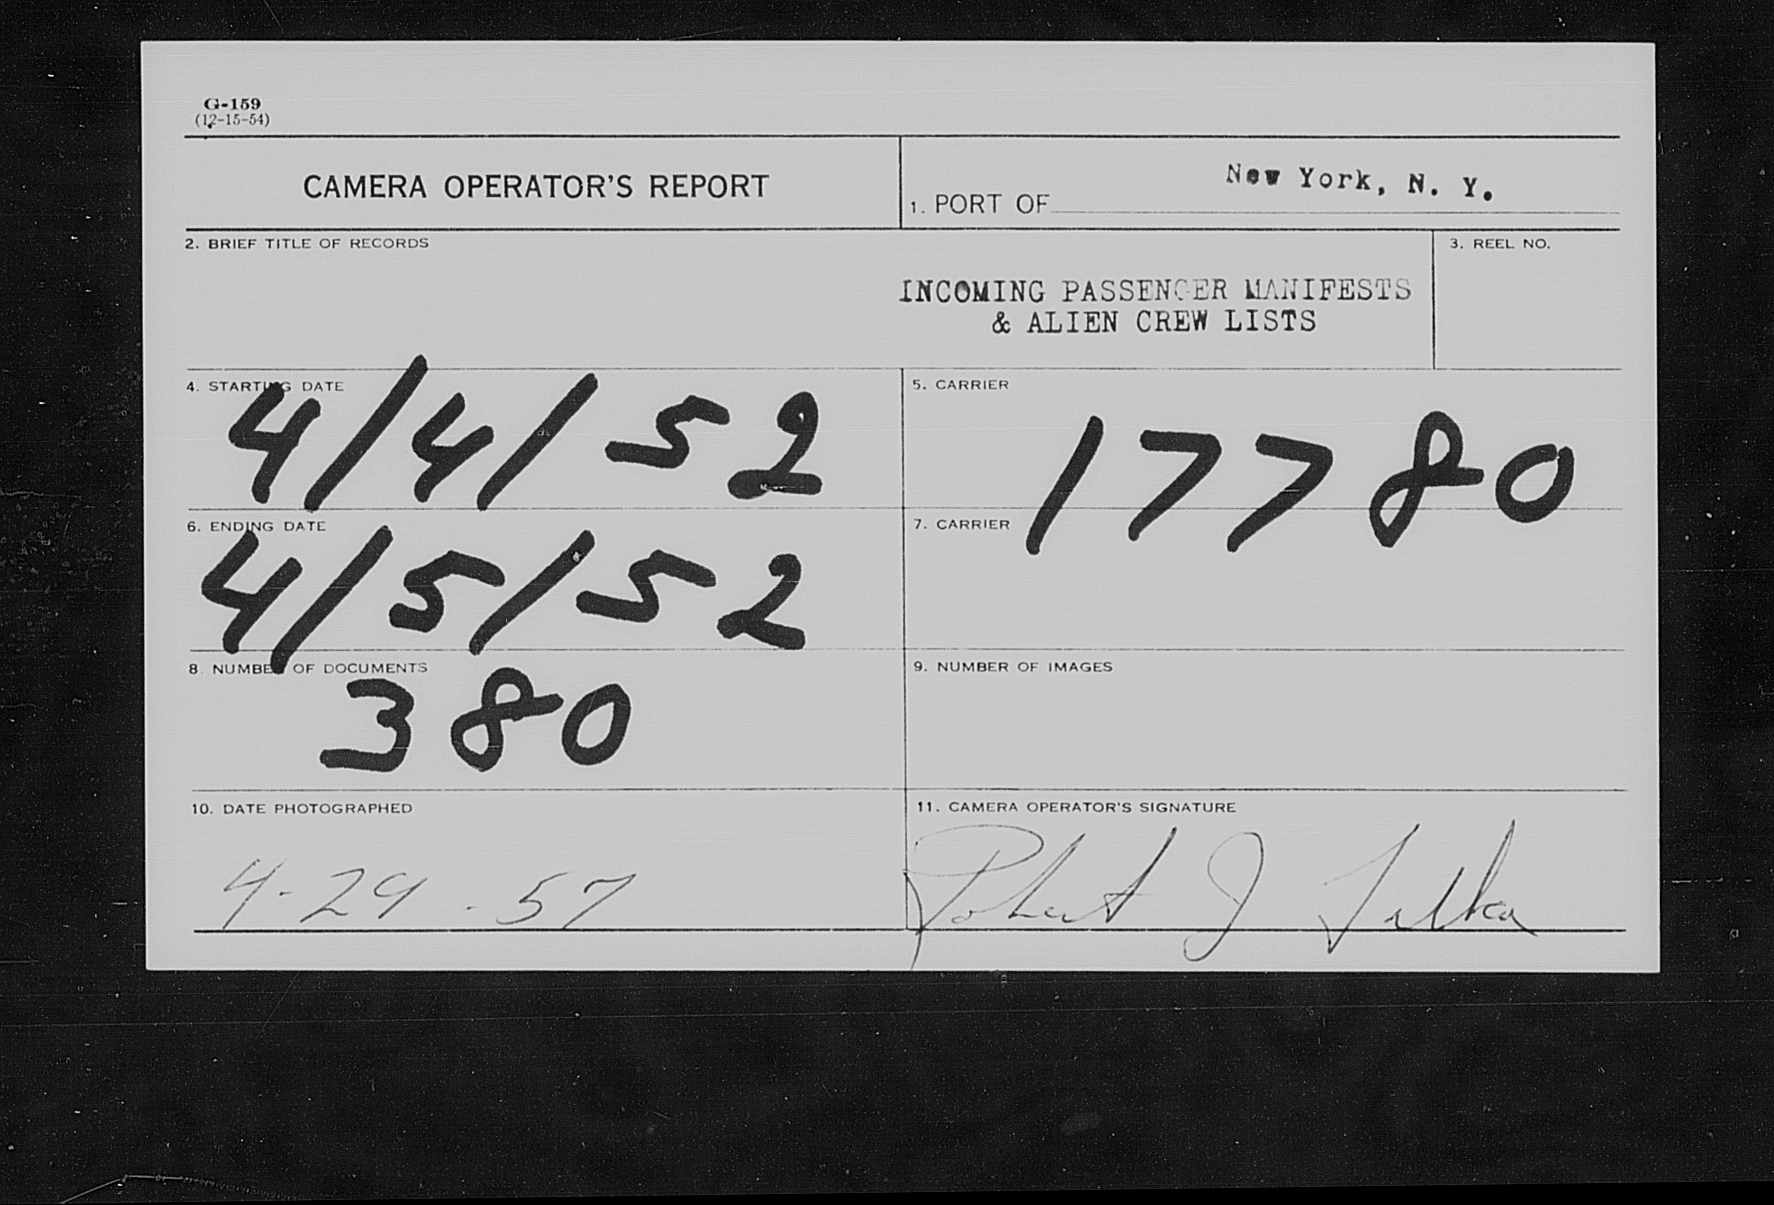 G-159
(12-15-54)
CAMERA OPERATOR'S REPORT
1. PORT OF New York, N. Y.
2. BRIEF TITLE OF RECORDS
INCOMING PASSENGER MANIFESTS
& ALIEN CREW LISTS
3. REEL NO.
4. STARTING DATE
4/4/52
5. CARRIER
17780
6. ENDING DATE
4/5/52
7. CARRIER
8. NUMBER OF DOCUMENTS
380
9. NUMBER OF IMAGES
10. DATE PHOTOGRAPHED
4-29-57
11. CAMERA OPERATOR'S SIGNATURE
Robert J